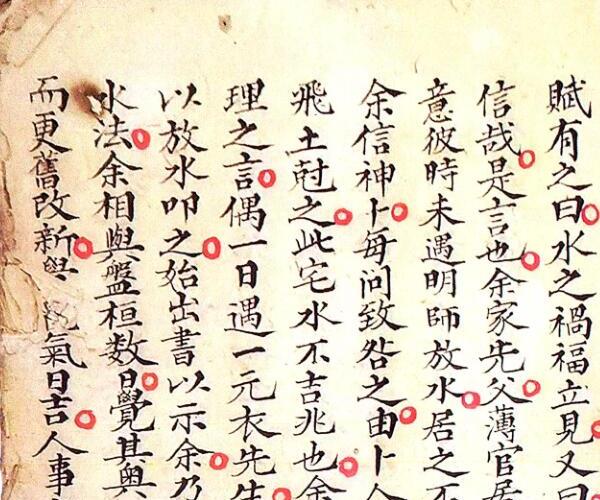 賦有之曰水之禍福立見又曰
信哉是言也余家先父薄官居
意彼時未遇明師放水居之不
余信神卜每问致咎之由卜人
飛土尅之此宅水不吉兆也余
理之言偶一日遇一元衣先生
以放水叩之始出書以示余乃
水法余相與盤桓数日覺其奥
而更舊改新 氣日吉人事